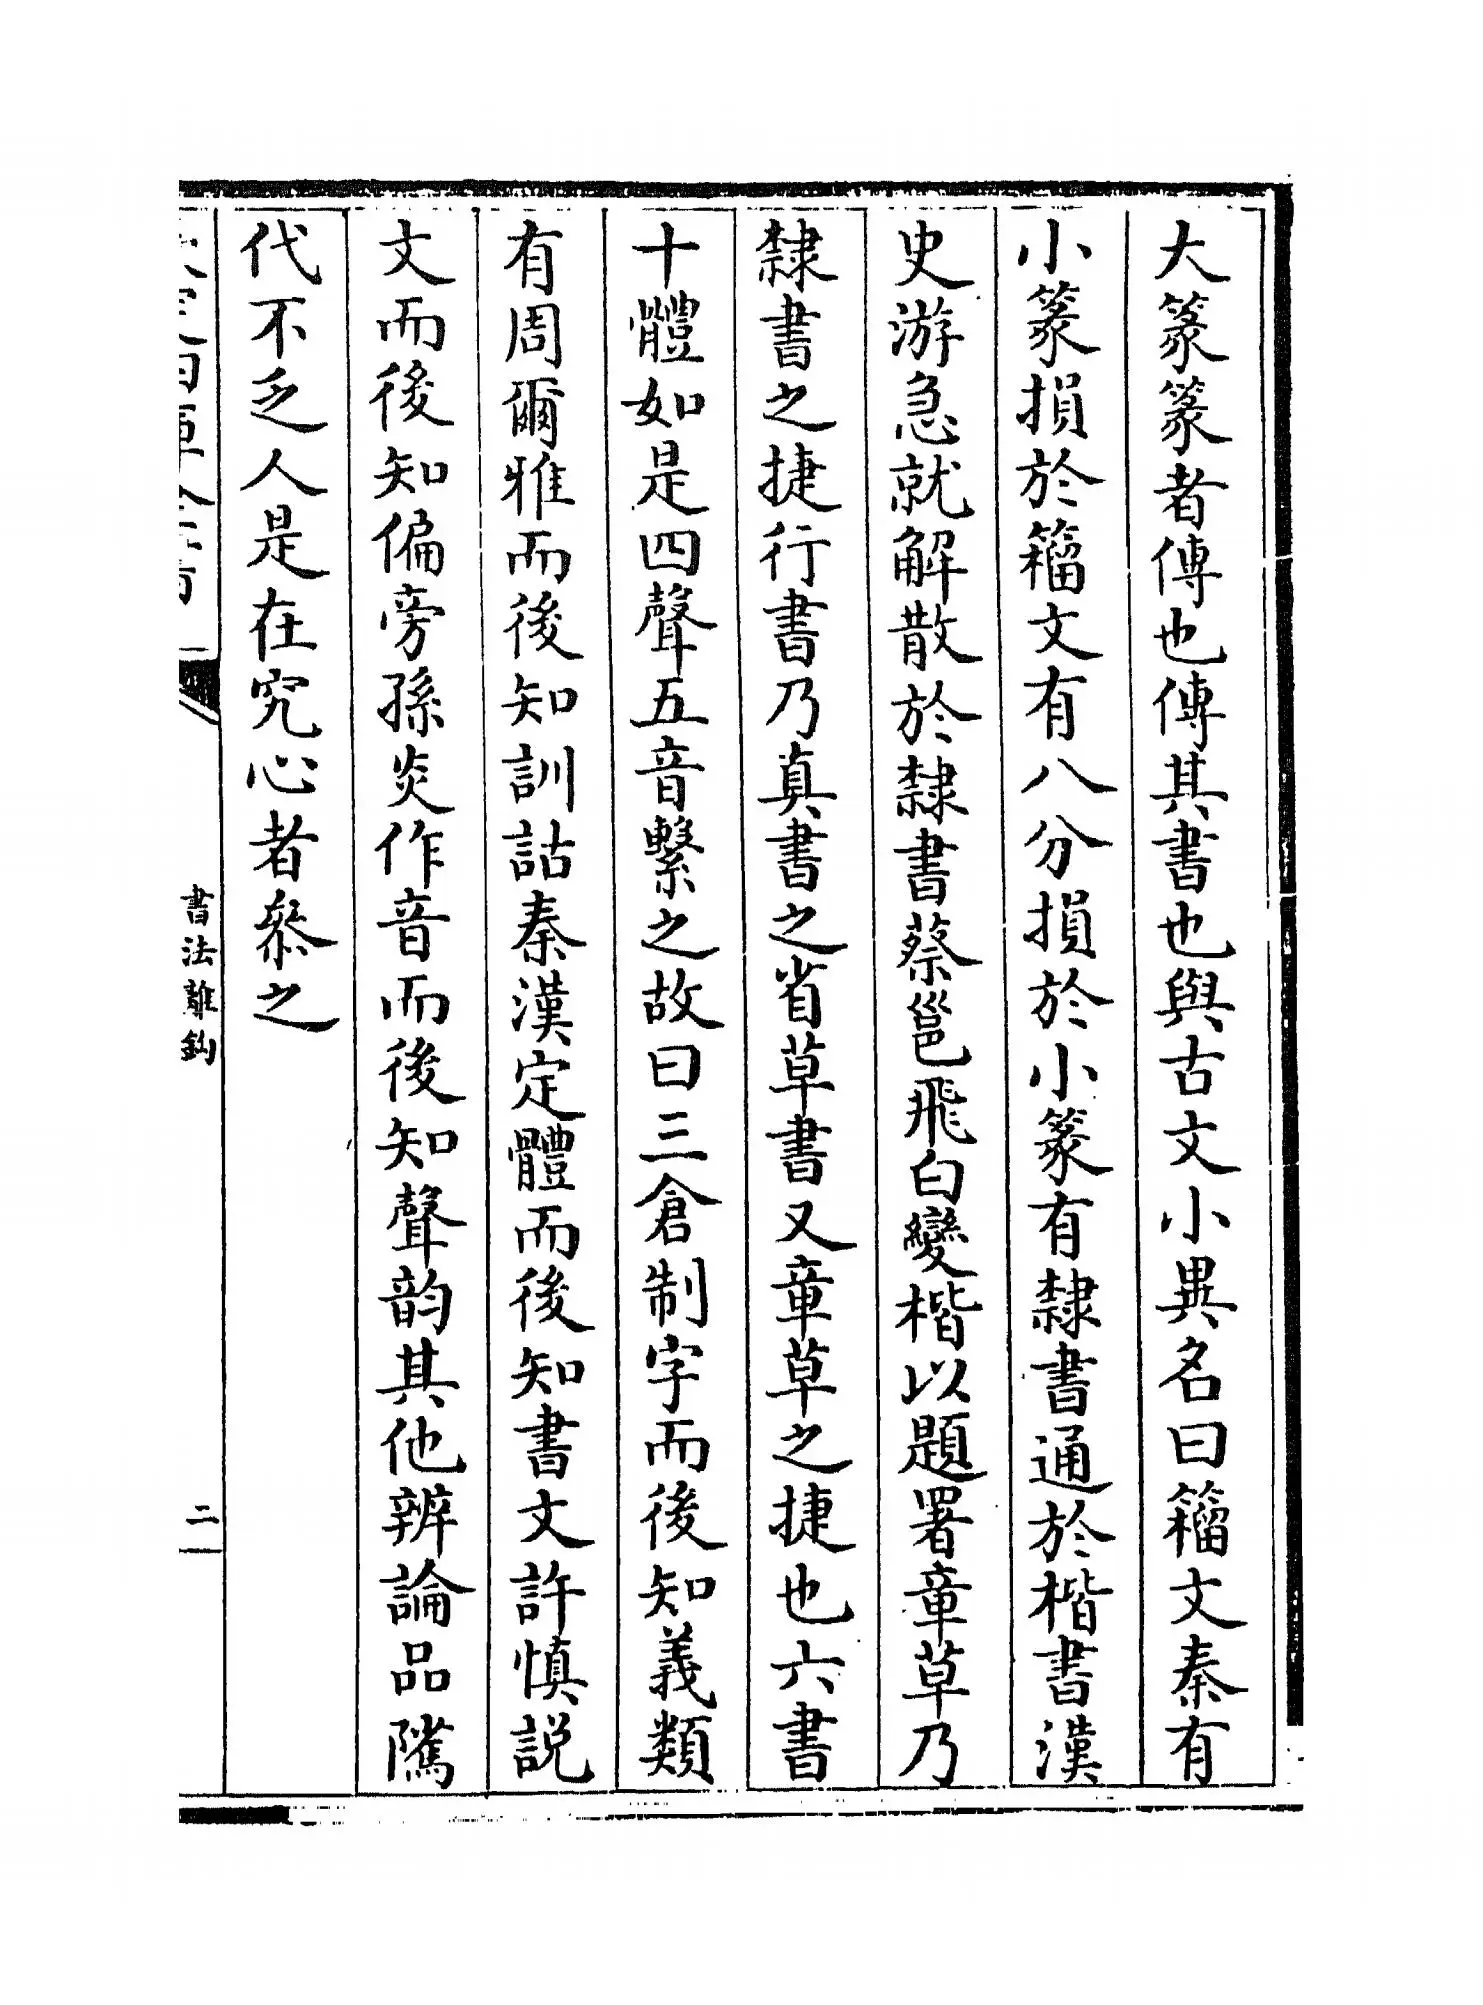 大篆篆者傳也傳其書也與古文小異名曰籀文秦有
小篆損於籀文有八分損於小篆有隸書通於楷書漢
史游急就解散於隸書蔡邕飛白變楷以題署章草乃
隸書之捷行書乃真書之省草書又章草之捷也六書
十體如是四聲五音繫之故曰三倉制字而後知義類
有周爾雅而後知訓詁秦漢定體而後知書文許慎説
文而後知偏旁孫炎作音而後知聲韵其他辨論品隲
代不乏人是在究心者叅之
欽定四庫全書
書法離鈎
二